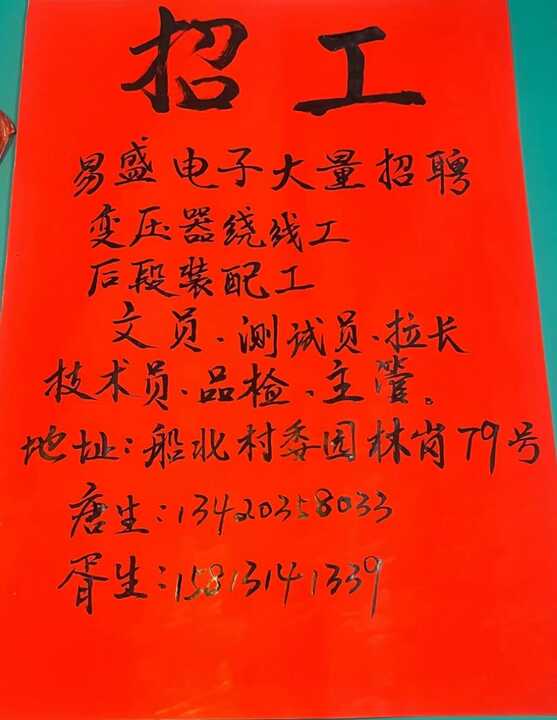 招工
易盛电子大量招聘
变压器绕线工
后段装配工
文员、测试员、拉长
技术员、品检、主管。
地址:船北村委园林岗79号
唐生:13420358033
胥生:15813141339